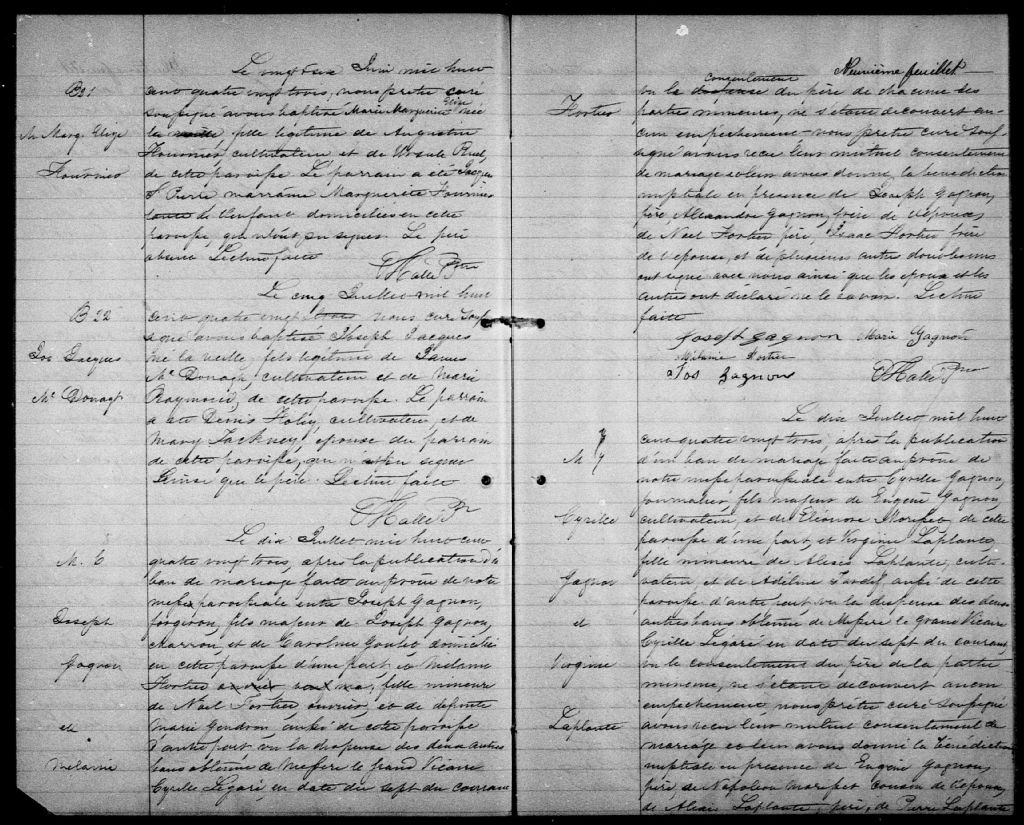 B 21
M. Marg. Elize
Fournier
Le vingt six Juin mil huit
cent quatre vingt trois, nous prêtre curé
soussigné avons baptisé Marie Marguerite Elize née
la veille, fille légitime de Augustin
Fournier, cultivateur et de Ursule Ruel,
de cette paroisse. Le parrain a été Jacques
St Pierre marraine Marguerite Fournier
tante de l'enfant domiciliés en cette
paroisse, qui n'ont pu signer. Le père
absent. Lecture faite
B 22
Jos Jacques
Mc Donagh
Le cinq Juillet mil huit
cent quatre vingt trois nous curé sous-
signé avons baptisé Joseph Jacques
né la veille, fils légitime de James
Mc Donagh, cultivateur et de Marie
Raymond, de cette paroisse. Le parrain
a été Denis Foley, cultivateur, et de
Mary Lackney, épouse du parrain
de cette paroisse, qui n'a pu signer
ainsi que le père. Lecture faite
M. 6
Joseph
Gagnon
et
Mélanie
Le dix Juillet mil huit cent
quatre vingt trois, après la publication d'un
ban de mariage faite au prône de notre
messe paroissiale entre Joseph Gagnon,
forgeron, fils majeur de Joseph Gagnon,
charron, et de Caroline Goulet domicilié
en cette paroisse d'une part et Mélanie
Fortier, fille mineure
de Noel Fortier ouvrier, et de défunte
Marie Gendron, aussi de cette paroisse
d'autre part vu la dispense des deux autres
bans obtenue de Messire le grand Vicaire
Cyrille Légaré, en date du sept du courant
Neuvième feuillet
Fortier
consentement
vu la dispense du père de chacune des
parties mineures, ne s'étant découvert au-
cun empêchement nous prêtre curé sous-
signé avons reçu leur mutuel consentement
de mariage et leur avons donné la bénédiction
nuptiale en présence de Joseph Gagnon,
père Alexandre Gagnon, frère de l'époux,
de Noel Fortier père, Isaac Fortier frère
de l'épouse, et de plusieurs autres dont les uns
ont signé avec nous ainsi que les époux et les
autres ont déclaré ne le savoir. Lecture
faite
Joseph Gagnon Marie Gagnon
Mélanie Fortier
Jos Gagnon
M 7
Cyrille
Gagnon
et
Virginie
Laplante
Le dix Juillet mil huit
cent quatre vingt trois, après la publication
d'un ban de mariage faite au prône de
notre messe paroissiale entre Cyrille Gagnon,
journalier, fils majeur de Eugène Gagnon,
cultivateur, et de Eléonore Morisset, de cette
paroisse d'une part, et Virginie Laplante,
fille mineure de Alexis Laplante, culti-
vateur et de Adéline Tardif, aussi de cette
paroisse d'autre part vu la dispense des deux
autres bans obtenue de Messire le Grand Vicaire
Cyrille Légaré en date du sept du courant
vu le consentement du père de la partie
mineure, ne s'étant découvert aucun
empêchement nous prêtre curé soussigné
avons reçu leur mutuel consentement de
mariage et leur avons donné la bénédiction
nuptiale en présence de Eugène Gagnon,
père de Napoléon Morisset cousin de l'époux,
de Alexis Laplante, père, de Pierre Laplante